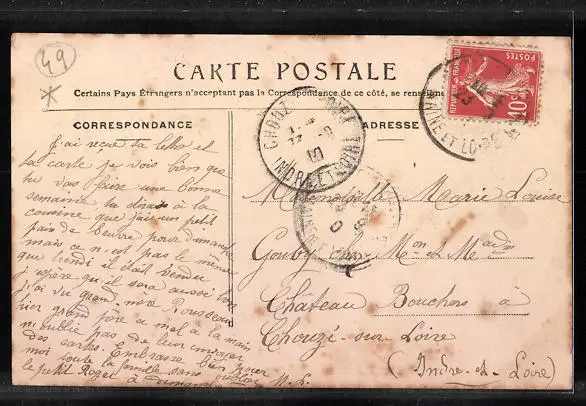 49
*
CARTE POSTALE
Certains Pays Étrangers n'acceptant pas la Correspondance de ce côté, se renseigner
CORRESPONDANCE
ADRESSE
REPUBLIQUE FRANÇAISE
POSTES
10c
CHOUZÉ
INDRE ET LOIRE
LOIRE
J'ai reçue ta et
la carte je vois bien que
tu vas faire une bonne
semaine tu diras à la
cousine que j'ais un petit
pain de beurre pour dimanche
mais ce n'est pas le même
que lundi il était vendu
j'espère qu'il sera aussi bon
j'ai vu grand-mère Rousseau
hier grand père a mal a la main
n'oublie pas de leur envoyer
des cartes. Embrasse bien pour
moi toute la famille sans oublier
le petit Roger à dimanche
M. L.
Mademoiselle Marie Louise
chez Mon et Madme
Château Bouchers à
Chouzé-sur-Loire
(Indre-et-Loire)